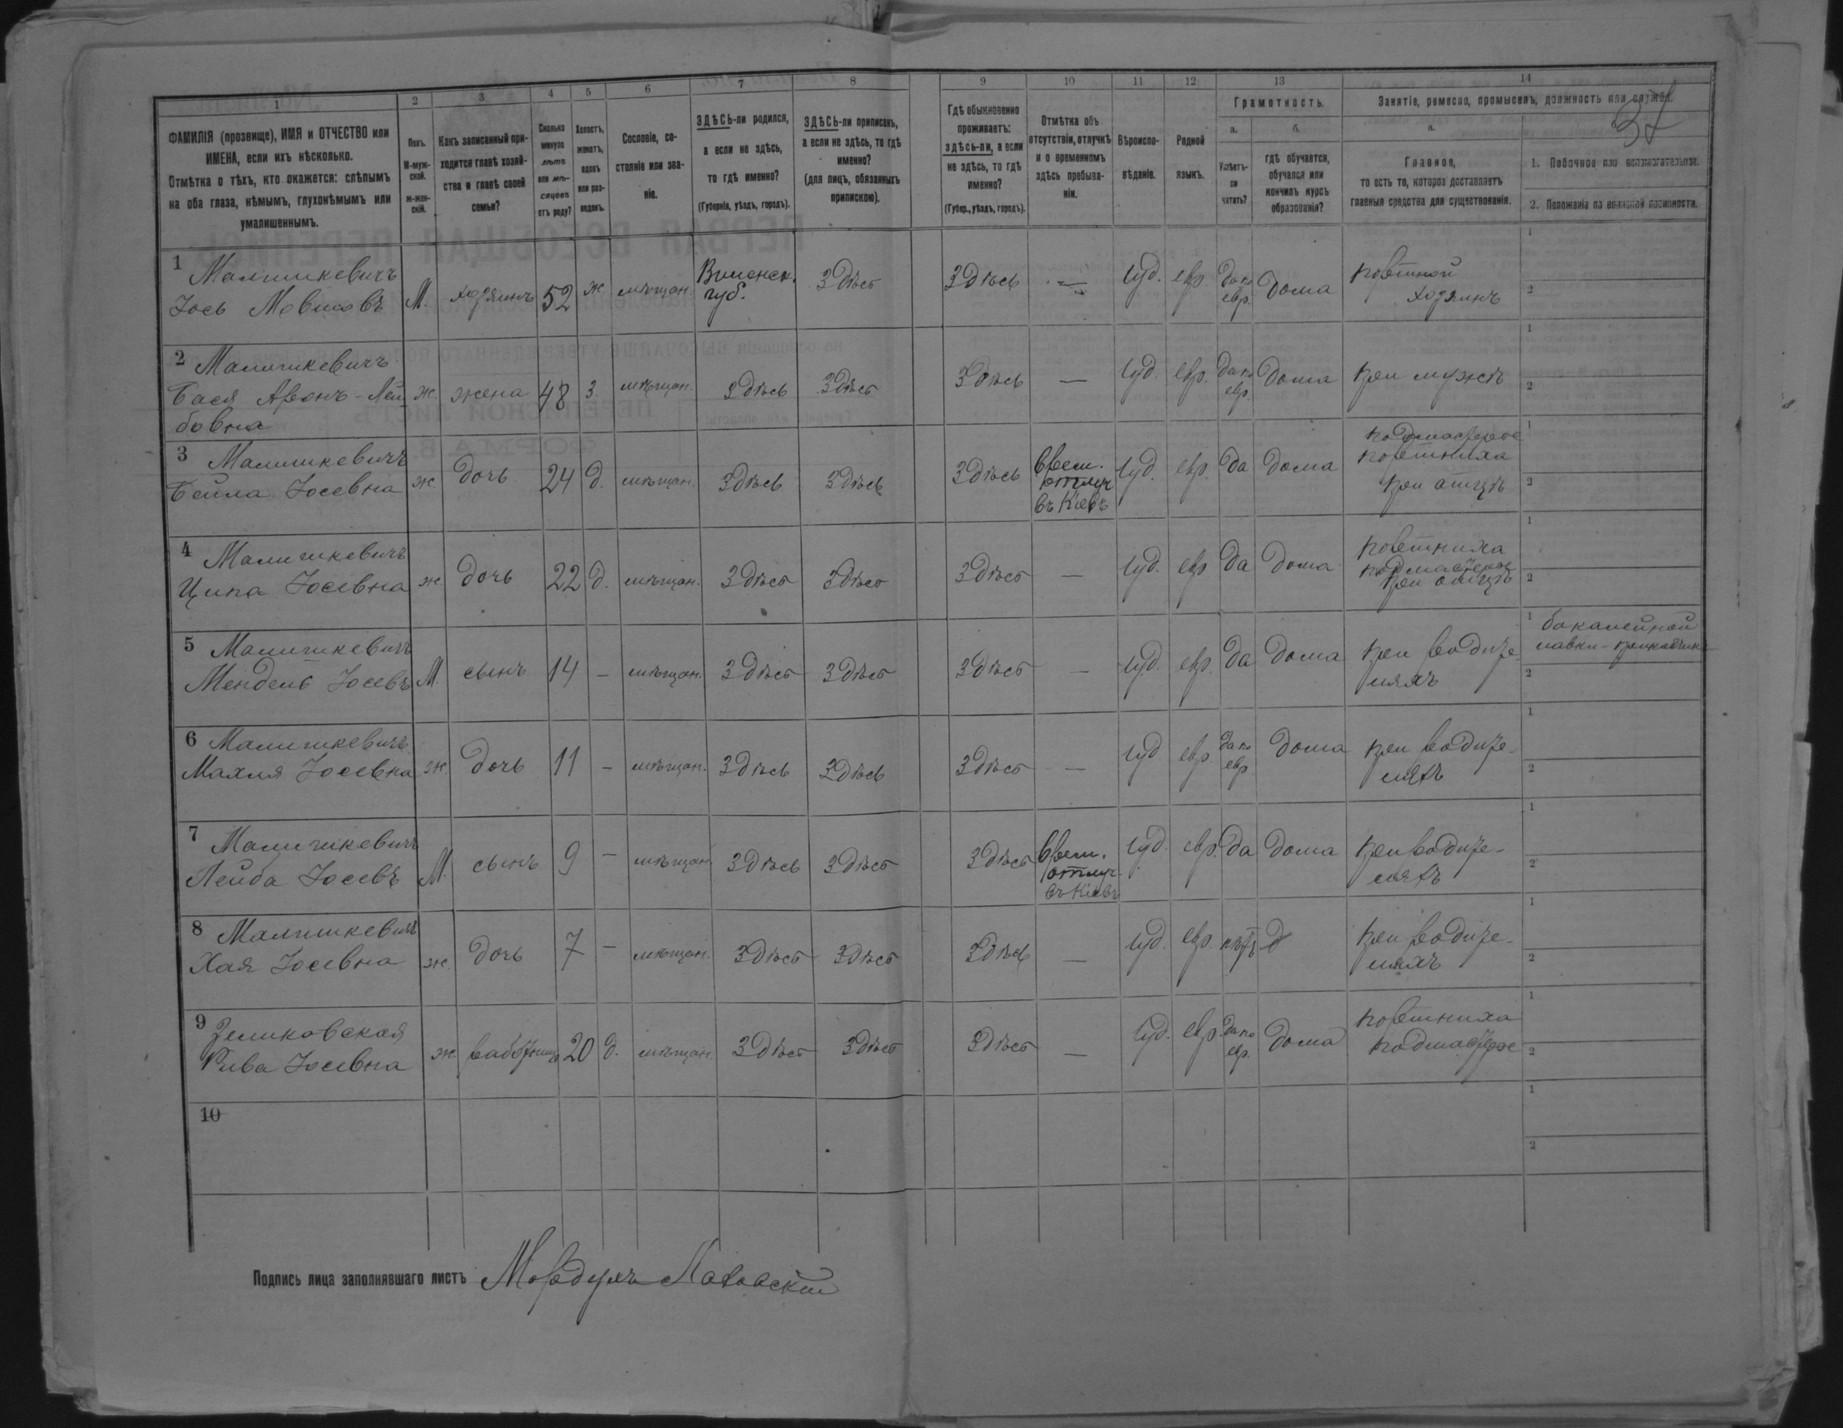 37
1 2 3 4 5 6 7 8 9 10 11 12 13 14
ФАМИЛІЯ (прозвище), ИМЯ и ОТЧЕСТВО или
ИМЕНА, если ихъ нѣсколько.
Отмѣтка о тѣхъ, кто окажется: слѣпымъ
на оба глаза, нѣмымъ, глухонѣмымъ или
умалишеннымъ.
Полъ.
М-муж-
ской.
ж-жен-
скій.
Какъ записанный при-
ходится главѣ хозяй-
ства и главѣ своей
семьи?
Сколько
минуло
лѣтъ
или мѣ-
сяцевъ
отъ роду?
Холостъ,
женатъ,
вдовъ
или раз-
веденъ.
Сословіе, со-
стояніе или зва-
ніе.
ЗДѢСЬ-ли родился,
а если не здѣсь,
то гдѣ именно?
(Губернія, уѣздъ, городъ).
ЗДѢСЬ-ли приписанъ,
а если не здѣсь, то гдѣ
именно?
(для лицъ, обязанныхъ
припискою).
Гдѣ обыкновенно
проживаетъ:
здѣсь-ли, а если
не здѣсь, то гдѣ
именно?
(Губер., уѣздъ, городъ).
Отмѣтка объ
отсутствіи, отлучкѣ
и о временномъ
здѣсь пребыва-
ніи.
Вѣроиспо-
вѣданіе.
Родной
языкъ.
Грамотность.
а.
Умѣетъ-
ли
читать?
б.
гдѣ обучается,
обучался или
кончилъ курсъ
образованія?
Занятіе, ремесло, промыселъ, должность или служба.
а.
Главное,
то есть то, которое доставляетъ
главныя средства для существованія.
1. Побочное или вспомогательное.
2. Положеніе по воинской повинности.
1 Малишкевичъ
Іось Мовшовъ М. хозяинъ 52 ж мѣщан. Виленск. губ. Здѣсь Здѣсь — Іуд. евр. да по евр. Дома портной хозяинъ
2 Малишкевичъ
Бася Аронъ-Лей
бовна ж. жена 48 з. мѣщан. Здѣсь Здѣсь Здѣсь — Іуд. евр. да по евр. Дома при мужѣ
3 Малишкевичъ
Бейла Іосевна ж дочь 24 д. мѣщан. Здѣсь Здѣсь Здѣсь Врем. отлуч въ Кіевъ Іуд. евр. да Дома подмастерье портниха при отцѣ
4 Малишкевичъ
Ципа Іосевна ж дочь 22 д. мѣщан. Здѣсь Здѣсь Здѣсь — Іуд. евр да Дома портниха подмастерье при отцѣ
5 Малишкевичъ
Мендель Іосевъ М. сынъ 14 — мѣщан. Здѣсь Здѣсь Здѣсь — Іуд. евр. да Дома при родите- ляхъ бакалейной лавки-прикащикъ
6 Малишкевичъ
Махля Іосевна ж. дочь 11 — мѣщан. Здѣсь Здѣсь Здѣсь — Іуд евр. да по евр Дома при родите- ляхъ
7 Малишкевичъ
Лейба Іосевъ М. сынъ 9 — мѣщан Здѣсь Здѣсь Здѣсь Врем. отлуч. въ Кіевъ Іуд. евр. да Дома при родите- ляхъ
8 Малишкевичъ
Хая Іосевна ж. дочь 7 — мѣщан. Здѣсь Здѣсь Здѣсь — Іуд. евр. нѣтъ при родите- ляхъ
9 Зеликовская
Рива Іосевна ж работница 20 д. мѣщан. Здѣсь Здѣсь Здѣсь — Іуд. евр да по евр. Дома портниха подмастерье
10
Подпись лица заполнявшаго листъ Мордухъ